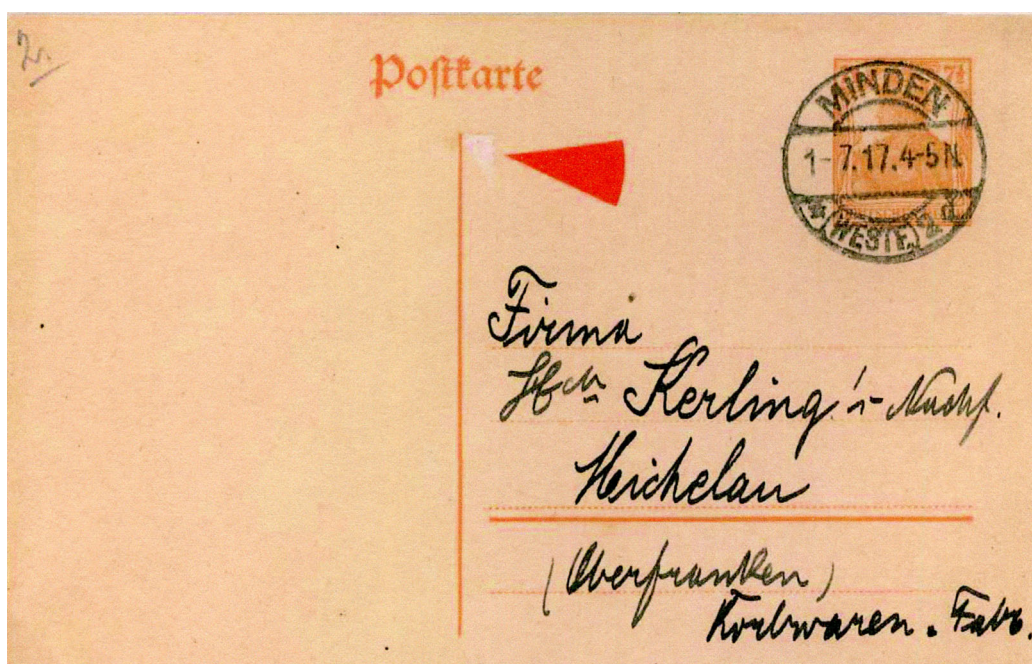 2.
Postkarte
7½
MINDEN
1-7.17.4-5N.
* (WESTF.) 2 d
Firma
Hch Kerling's Nachf.
Michelau
(Oberfranken)
Korbwaren-Fabr.